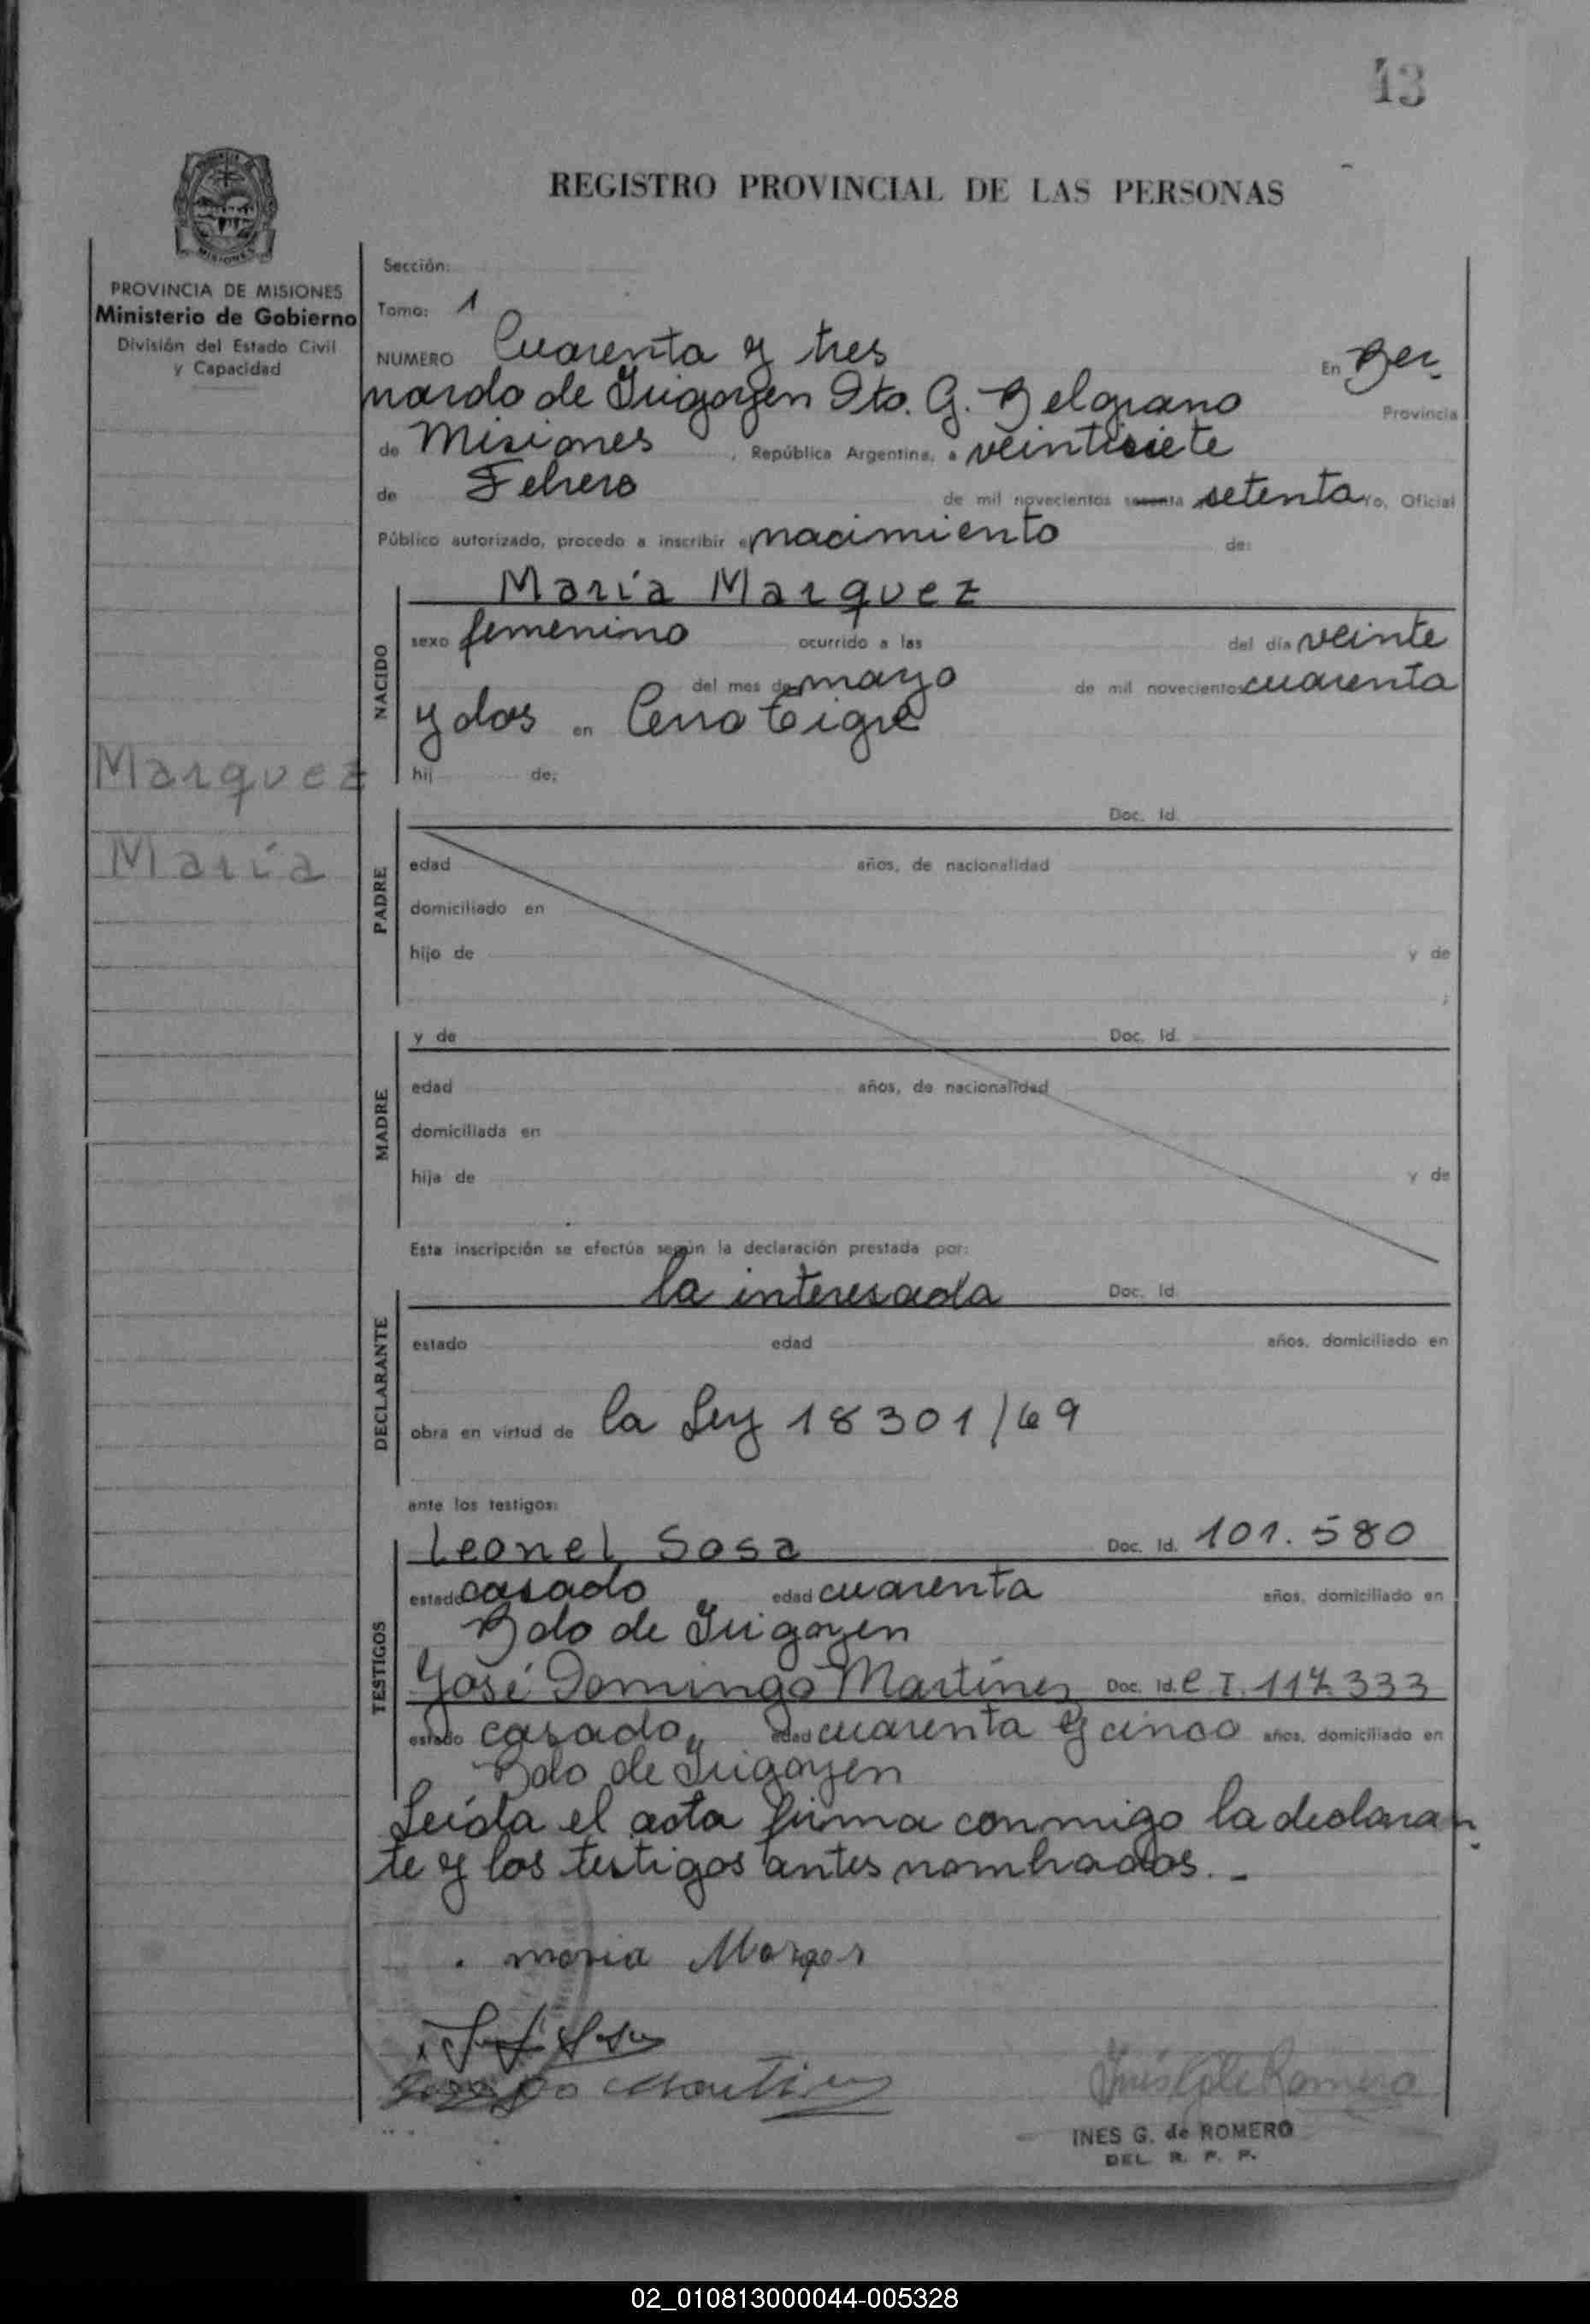 43
REGISTRO PROVINCIAL DE LAS PERSONAS
MISIONES
PROVINCIA DE MISIONES
Ministerio de Gobierno
División del Estado Civil
y Capacidad
Sección:
Tomo: 1
NUMERO Cuarenta y tres En Ber
nardo de Irigoyen Dto. G. Belgrano Provincia
de Misiones, República Argentina, a veintisiete
de Febrero de mil novecientos sesenta setenta Yo, Oficial
Público autorizado, procedo a inscribir el nacimiento de:
María Marquez
NACIDO
sexo femenino ocurrido a las del día veinte
del mes de mayo de mil novecientos cuarenta
y dos en Cerro Tigre
hij de:
Marquez
María
PADRE
Doc. Id.
edad años, de nacionalidad
domiciliado en
hijo de y de
;
MADRE
y de Doc. Id.
edad años, de nacionalidad
domiciliada en
hija de y de
Esta inscripción se efectúa según la declaración prestada por:
DECLARANTE
la interesada Doc. Id.
estado edad años, domiciliado en
obra en virtud de la Ley 18301/69
ante los testigos:
TESTIGOS
Leonel Sosa Doc. Id. 101.580
estado casado, edad cuarenta años, domiciliado en
Bdo de Irigoyen
José Domingo Martínez Doc. Id. C.I. 117.333
estado casado, edad cuarenta y cinco años, domiciliado en
Bdo de Irigoyen
Leída el acta firma conmigo la declaran
te y los testigos antes nombrados.-
maria
Martinez
INES G. de ROMERO
DEL R. P. P.
02_010813000044-005328